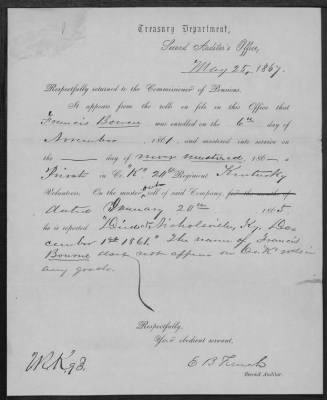 Treasury Department,
Second Auditor's Office,
May 25, 1867.
Respectfully returned to the Commissioner of Pensions.
It appears from the rolls on file in this Office that
Francis Bourne was enrolled on the 6th day of
November, 1861, and mustered into service on
the — day of never mustered, 186—, a
Private in Co. "K" 20th Regiment Kentucky
Volunteers. On the muster out roll of said Company, for the month of
dated January 20th, 1865,
he is reported "Died at Nicholasville, Ky. De-
cember 1st 1861." The name of Francis
Bourne does not appear on Co. K's rolls in
any grade.
Respectfully,
Your obedient servant,
E B French
Second Auditor.